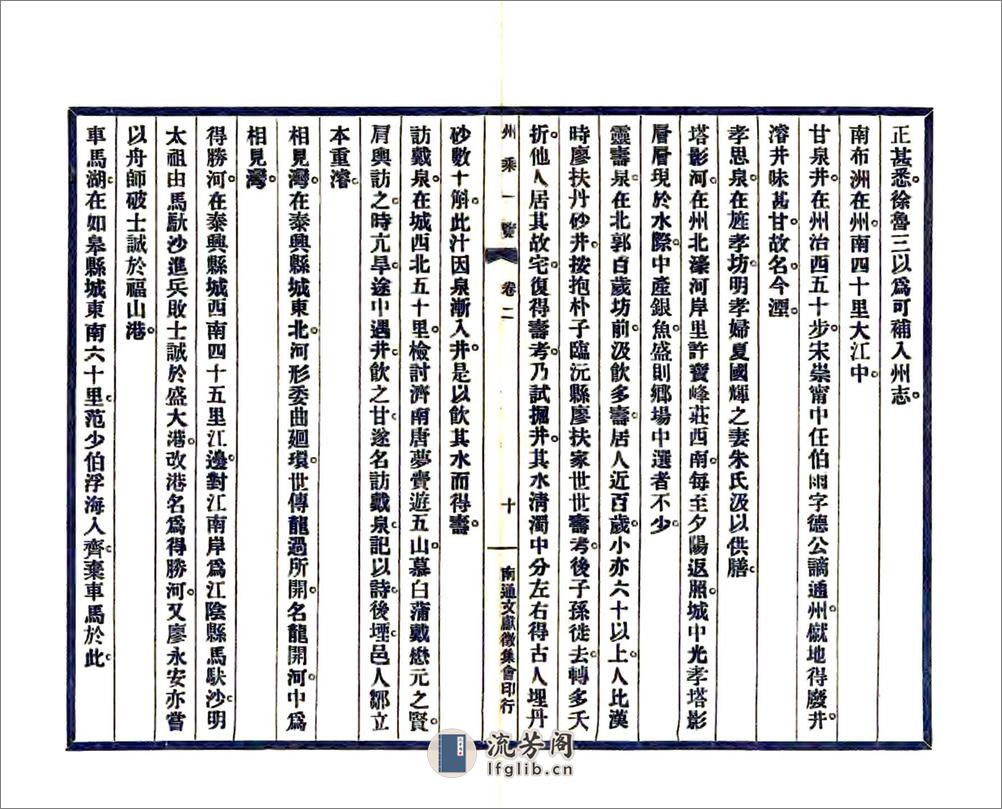 正甚悉。徐魯三以爲可補入州志。
南布洲在州南四十里大江中。
甘泉井在州治西五十步。宋崇甯中任伯雨字德公謫通州。僦地得廢井。
濬井味甚甘。故名。今湮。
孝思泉在旌孝坊。明孝婦夏國輝之妻朱氏汲以供膳。
塔影河在州北濠河岸里許寶峰莊西南。每至夕陽返照。城中光孝塔影
層層現於水際。中產銀魚。盛則鄉場中選者不少。
靈壽泉在北郭百歲坊前。汲飲多壽。居人近百歲。小亦六十以上。人比漢
時廖扶丹砂井。按抱朴子臨沅縣廖扶家世世壽考。後子孫徙去。轉多夭
折。他人居其故宅。復得壽考。乃試掘井。其水清濁中分。左右得古人埋丹
州乘一覽 卷二 十 南通文獻徵集會印行
砂數十斛。此汁因泉漸入井。是以飲其水而得壽。
訪戴泉在城西北五十里。檢討濟南唐夢賚遊五山。慕白蒲戴懋元之賢。
肩輿訪之。時亢旱。途中遇井。飲之甘。遂名訪戴泉。記以詩。後堙。邑人鄒立
本重濬。
相見灣在泰興縣城東北。河形委曲廻環。世傳龍過所開。名龍開河。中爲
相見灣。
得勝河在泰興縣城西南四十五里江邊。對江南岸爲江陰縣馬馱沙。明
太祖由馬馱沙進兵。敗士誠於盛大港。改港名爲得勝河。又廖永安亦嘗
以舟師破士誠於福山港。
車馬湖在如皋縣城東南六十里。范少伯浮海入齊。棄車馬於此。
流芳阁
lfglib.cn